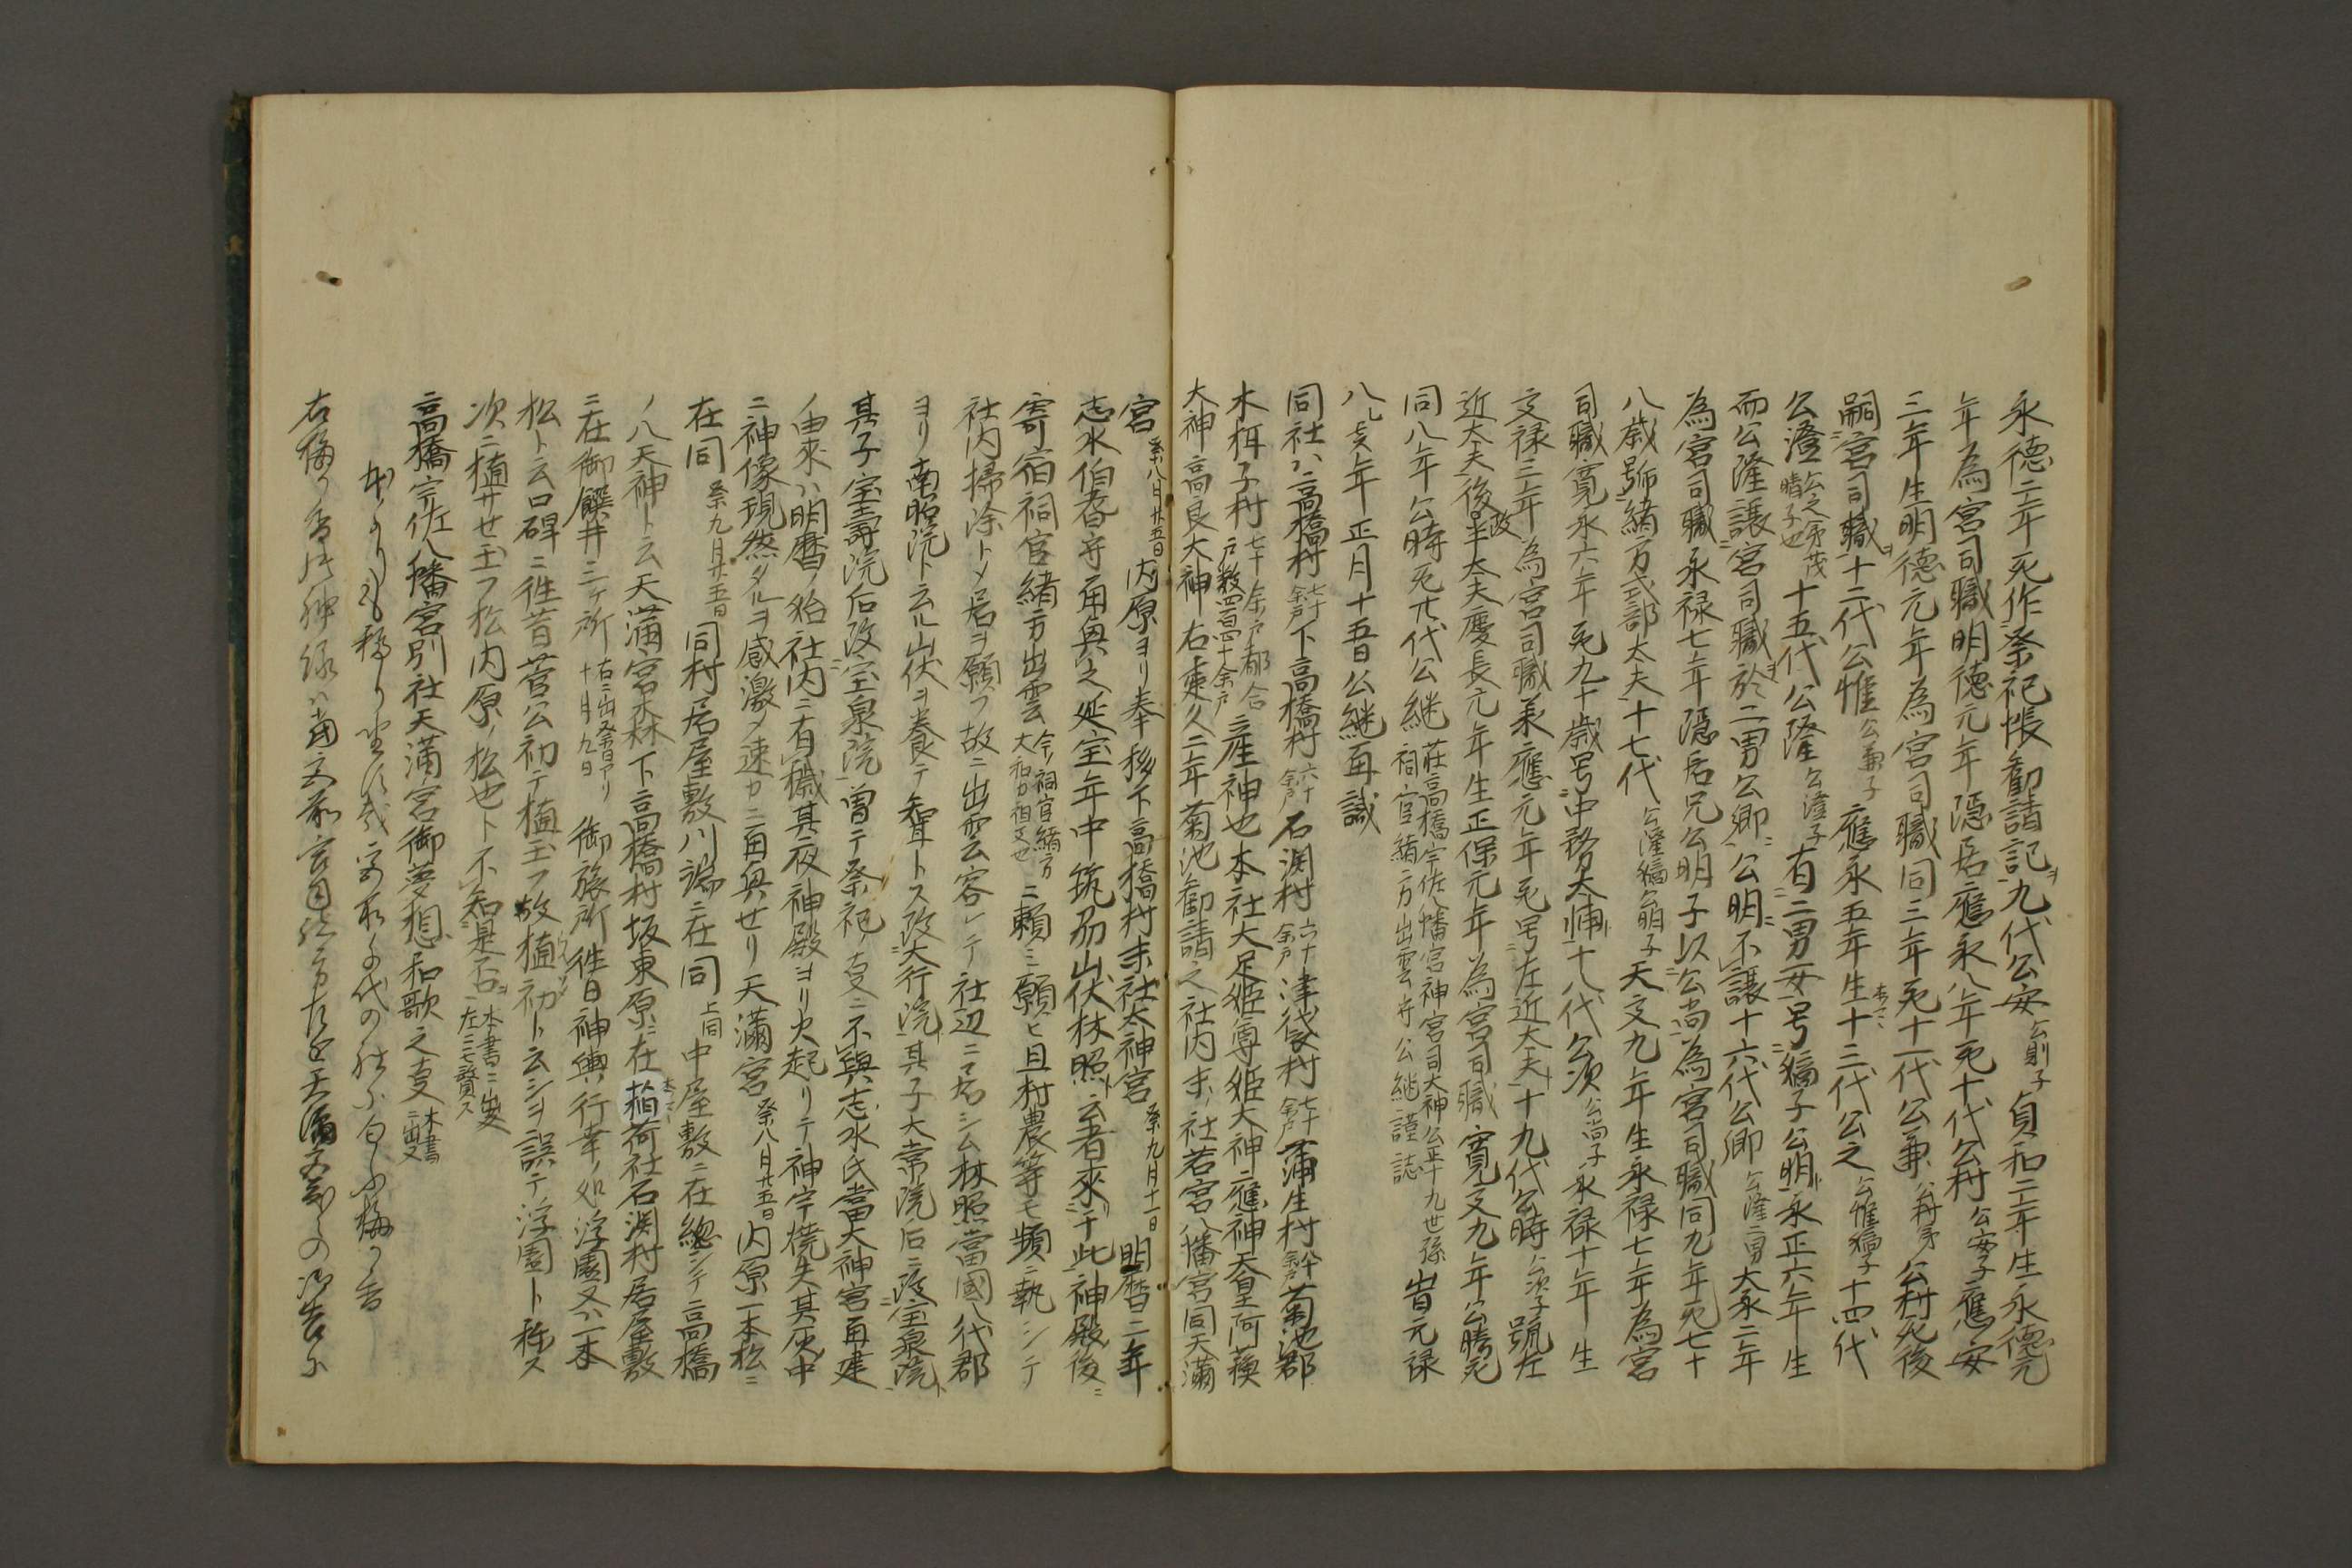 永徳二年死作祭祀帳勧請記ヲ九代公安公則子貞和二年生永徳元
年為宮司職明徳元年隠居應永八年死十代公村公安子應安
三年生明徳元年為宮司職同三年死十一代公兼公村弟公村死後
嗣宮司職ヲ十二代公惟公兼子應永五年生十三代公之公惟猶子十四代
公澄公之弟茂晴子也十五代公隆公澄子有二男一女号猶子公明永正六年生
而公隆譲宮司職ヲ於二男公卿公明不譲十六代公卿公隆二男大永二年
為宮司職永禄七年隠居兄公明子以公尚為宮司職同九年死七十
八歳号緒方式部大夫十七代公隆猶公明子天文九年生永禄七年為宮
司職寛永六年死九十歳号中務大輔十八代公次公尚子永禄十年生
文禄三年為宮司職承應元年死号左近大夫十九代公時公次子號左
近大夫後改半大夫慶長元年生正保元年為宮司職寛文九年公勝死
同八年公時死廿代公継莊高橋宇佐八幡宮神宮司大神公正十九世孫祠官緒方出雲守公継謹誌昔元禄
八乙亥年正月十五日公継再識
同社ハ高橋村七十余戸下高橋村六十余戸石渕村六十余戸津袋村七十余戸蒲生村余戸菊池郡
木柑子村七十余戸都合戸数四百四十余戸ノ産神也本社大足姫尊姫大神應神天皇阿蘓
大神高良大神右建久二年菊池勧請之社内末社若宮八幡宮同天満
宮祭八月廿五日内原ヨリ奉移下高橋村末社太神宮祭九月十一日明暦二年
志水伯耆守再興之延宝年中筑前山伏林照ト云者来于此神殿後ニ
寄宿祠官緒方出雲今ノ祠官緒方大和カ祖父也ニ頼ミ願ヒ且村農等モ頻ニ執シテ
社内掃除トメ居ヲ願フ故ニ出雲容レテ社辺ニ居シム林照當國八代郡
ヨリ南照院ト云ル山伏ヲ養テ聟トス改大行院ト其子大常院后ニ改宝泉院ト
其子宝壽院后改宝泉院曽テ祭祀ノ亊ニ不與志水氏當大神宮再建
ノ由来ハ明暦ノ始社内ニ有穢其夜神殿ヨリ火起リテ神宇焼失其灰中
ニ神像現然タルヲ感激メ速カニ再興せリ天満宮祭八月廿五日内原一本松ニ
在同祭九月廿五日同村居屋敷川端ニ在同上同中屋敷ニ在總シテ高橋
ノ八天神ト云天満宮木林下高橋村坂東原ニ在稲荷社石渕村居屋敷
ニ在御饌井三ケ所右ニ出祭日アリ十月九日御旅所往日神輿行幸ノ処浮園又ハ一本
松ト云口碑ニ往昔菅公初テ植玉フ故植初ト云シヲ誤テ浮園ト称ス
次ニ植サせ玉フ松内原ノ松也ト不知是否ヲ本書ニ出亊左ニモ賛ス
高橋宇佐八幡宮別社天満宮御夢想和歌之亊本書ニ出又